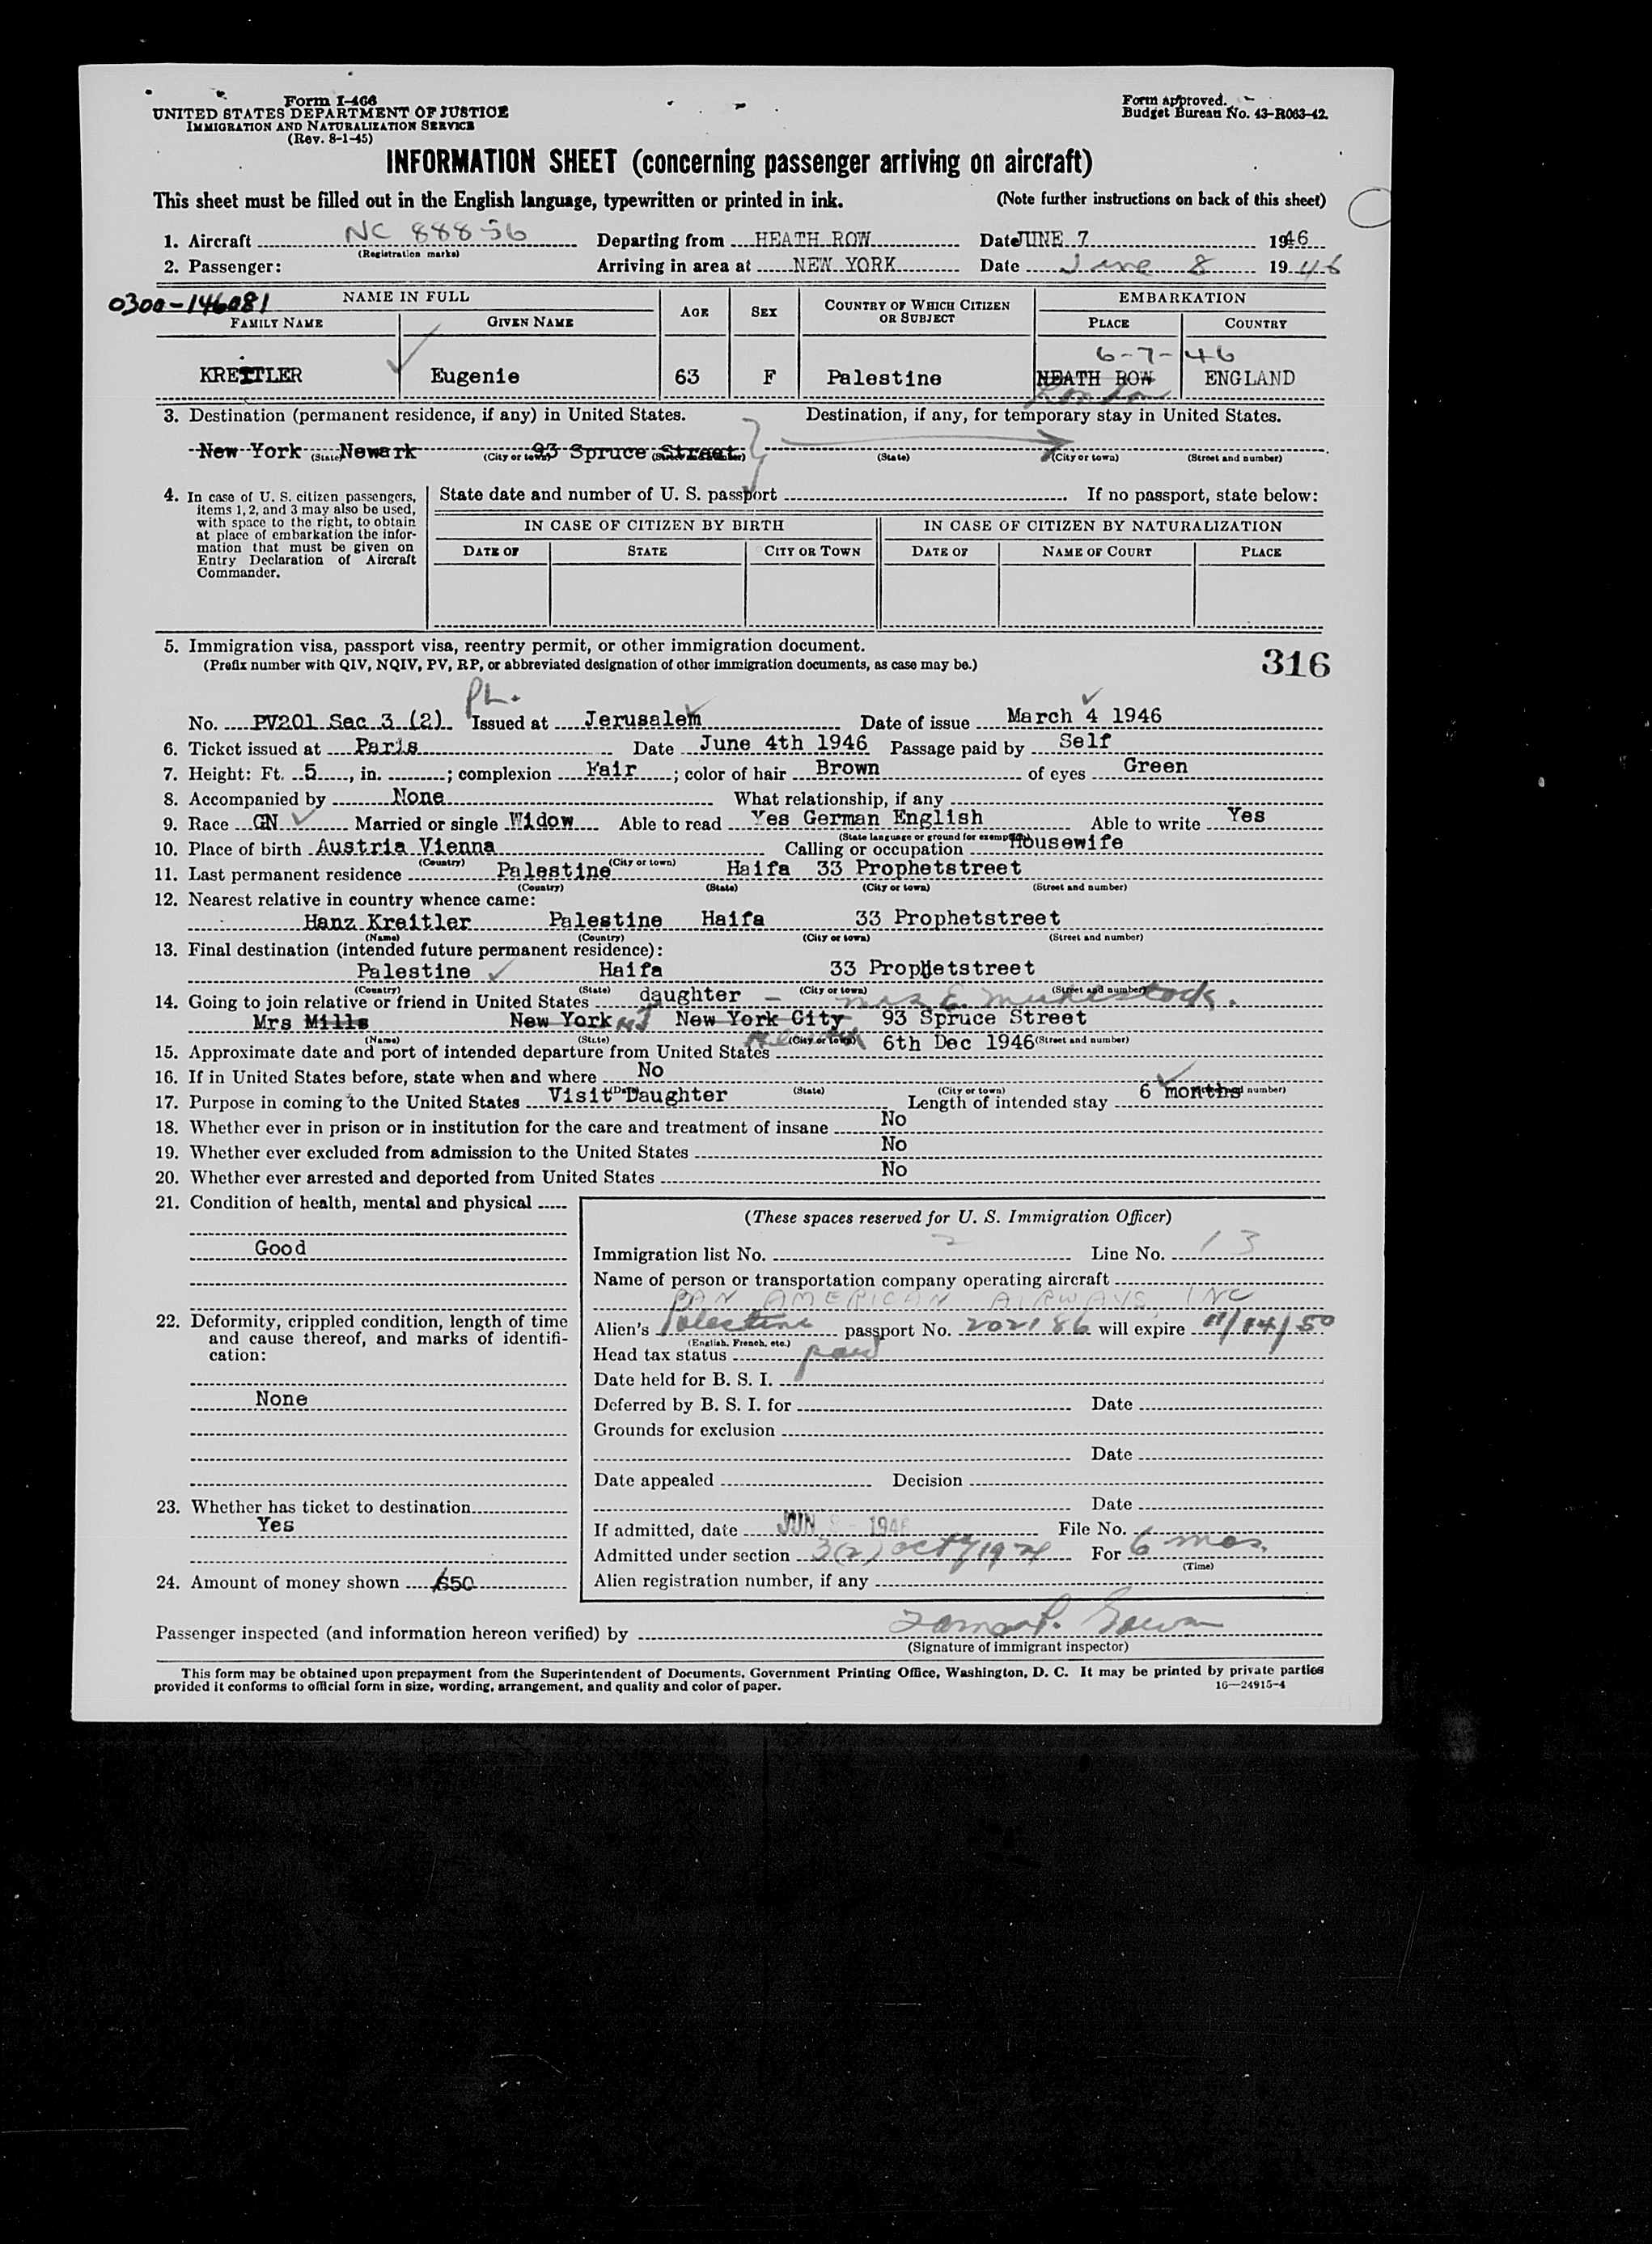 Form I-466
UNITED STATES DEPARTMENT OF JUSTICE
IMMIGRATION AND NATURALIZATION SERVICE
(Rev. 8-1-45)
Form approved.
Budget Bureau No. 43-R063-42.
INFORMATION SHEET (concerning passenger arriving on aircraft)
This sheet must be filled out in the English language, typewritten or printed in ink. (Note further instructions on back of this sheet)
1. Aircraft NC 88856 Departing from HEATH ROW Date JUNE 7 1946
(Registration marks)
2. Passenger: Arriving in area at NEW YORK Date June 8 1946
0300-146081
NAME IN FULL AGE SEX COUNTRY OF WHICH CITIZEN OR SUBJECT EMBARKATION
FAMILY NAME GIVEN NAME PLACE COUNTRY
6-7-46
KREITLER Eugenie 63 F Palestine HEATH ROW ENGLAND
London
3. Destination (permanent residence, if any) in United States. Destination, if any, for temporary stay in United States.
New York Newark 93 Spruce Street
(State) (City or town) (Street and number) (State) (City or town) (Street and number)
4. In case of U. S. citizen passengers, items 1, 2, and 3 may also be used, with space to the right, to obtain at place of embarkation the information that must be given on Entry Declaration of Aircraft Commander.
State date and number of U. S. passport If no passport, state below:
IN CASE OF CITIZEN BY BIRTH IN CASE OF CITIZEN BY NATURALIZATION
DATE OF STATE CITY OR TOWN DATE OF NAME OF COURT PLACE
5. Immigration visa, passport visa, reentry permit, or other immigration document.
(Prefix number with QIV, NQIV, PV, RP, or abbreviated designation of other immigration documents, as case may be.)
316
PL.
No. PV201 Sec 3 (2) Issued at Jerusalem Date of issue March 4 1946
6. Ticket issued at Paris Date June 4th 1946 Passage paid by Self
7. Height: Ft. 5, in. ; complexion Fair ; color of hair Brown of eyes Green
8. Accompanied by None What relationship, if any
9. Race GN Married or single Widow Able to read Yes German English Able to write Yes
(State language or ground for exemption)
10. Place of birth Austria Vienna Calling or occupation Housewife
(Country) (City or town)
11. Last permanent residence Palestine Haifa 33 Prophetstreet
(Country) (State) (City or town) (Street and number)
12. Nearest relative in country whence came:
Hanz Kreitler Palestine Haifa 33 Prophetstreet
(Name) (Country) (City or town) (Street and number)
13. Final destination (intended future permanent residence):
Palestine Haifa 33 Prophetstreet
(Country) (State) (City or town) (Street and number)
14. Going to join relative or friend in United States daughter – Mrs E.
Mrs Mills New York NJ New York City 93 Spruce Street
(Name) (State) (City or town) (Street and number)
15. Approximate date and port of intended departure from United States 6th Dec 1946
16. If in United States before, state when and where No
(Date) (State) (City or town) (Street and number)
17. Purpose in coming to the United States Visit Daughter Length of intended stay 6 months
18. Whether ever in prison or in institution for the care and treatment of insane No
19. Whether ever excluded from admission to the United States No
20. Whether ever arrested and deported from United States No
21. Condition of health, mental and physical
Good
22. Deformity, crippled condition, length of time and cause thereof, and marks of identification:
None
23. Whether has ticket to destination
Yes
24. Amount of money shown $50
(These spaces reserved for U. S. Immigration Officer)
Immigration list No. 2 Line No. 13
Name of person or transportation company operating aircraft
PAN AMERICAN AIRWAYS, INC
Alien's Palestine passport No. 202186 will expire 11/14/50
(English, French, etc.)
Head tax status paid
Date held for B. S. I.
Deferred by B. S. I. for Date
Grounds for exclusion
Date
Date appealed Decision
Date
If admitted, date JUN 8 - 1946 File No.
Admitted under section 3(2) Act 1924 For 6 mos.
(Time)
Alien registration number, if any
Passenger inspected (and information hereon verified) by
(Signature of immigrant inspector)
This form may be obtained upon prepayment from the Superintendent of Documents, Government Printing Office, Washington, D. C. It may be printed by private parties
provided it conforms to official form in size, wording, arrangement, and quality and color of paper. 16—24915-4